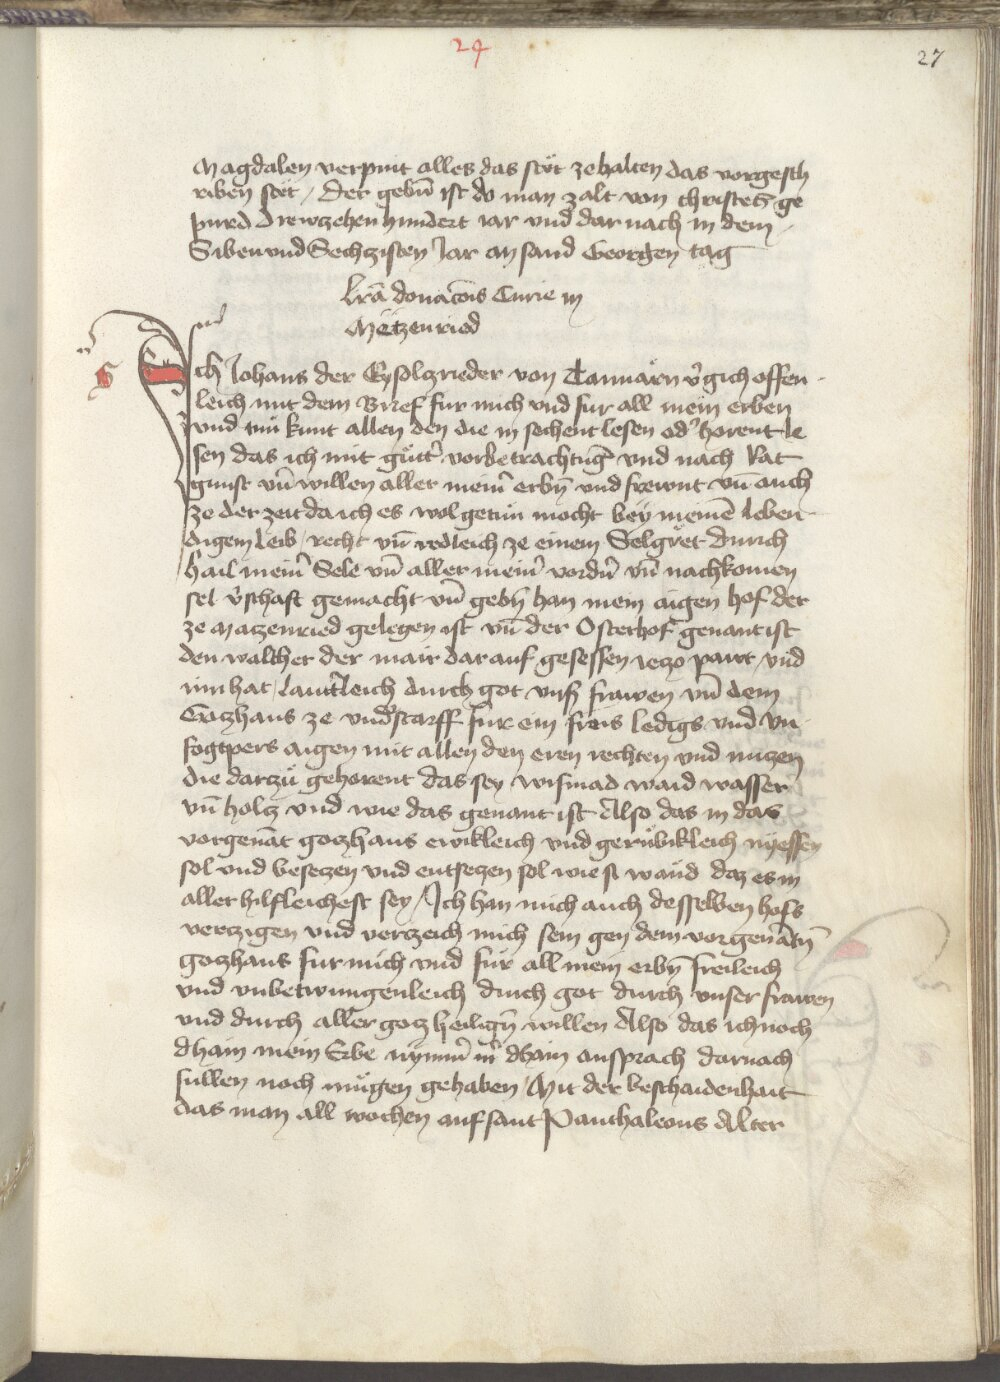 24
27
Magdalen verpint alles das stät ze halten das vorgesch
riben stet / Der gebn̄ ist do man zalt von christes ge
purd Drewzehen hundert iar vnd dar nach in dem
Siben vnd Sechzisten Jar an sand Georgen tag
Lrā donacōis Curie in
Mëtzenried
Ich Johans der Eysolzrieder von Tannärn v̓gich offen
leich mit dem Brief fur mich vnd fur all mein erben
vnd tuͦn kunt allen den die in sehent lesen od̓ horent le
sen das ich mit guͤtt̓ vorbetrachtūg vnd nach Rat
gunst vn̄ willen aller mein̓ erbn̄ vnd frewnt vn̄ auch
ze der zeit da ich es wol getuͦn mocht bey meinē leben
digem leib / recht vn̄ redleich ze einem Selgrët durich
hail mein̓ Sele vn̄ aller mein̓ vordn̓ vn̄ nachkomen
sel v̓schaft gemacht vn̄ gebn̄ han mein aigen hof der
ze Matzenried gelegen ist vn̄ der Osterhof genant ist
den walther der mair dar auf gesessen iezo pawt vnd
inn hat / laut̓leich durch got vnsꝰ frawen vn̄ dem
Gotzhaus ze vnd̓starff für ein freis ledigs vnd vn
fogtpers aigen mit allen den eren rechten vnd nuzen
die darzuͦ gehorent das sey wismad waid wasser
vn̄ holtz vnd wie das genant ist Also das in das
vorgenāt gotzhaus ewikleich vnd geruͦbikleich nyessen
sol vnd besetzen vnd entsetzen sol wie si wänd daz es in
aller hilfleichest sey / Ich han mich auch desselben hofs
verzigen vnd verzeich mich sein gen dem vorgenātn̄
gotzhaus fur mich vnd für all mein erbn̄ freileich
vnd vnbetwungenleich durch got durch vnser frawen
vnd durch aller gotz heilign̄ willen Also das ich noch
dhain mein Erbe nymm̓ m̓ dhain ansprach darnach
sullen noch muͤgen gehaben / Mit der beschaidenhait
das man all wochen auf sant Panthaleons Alter